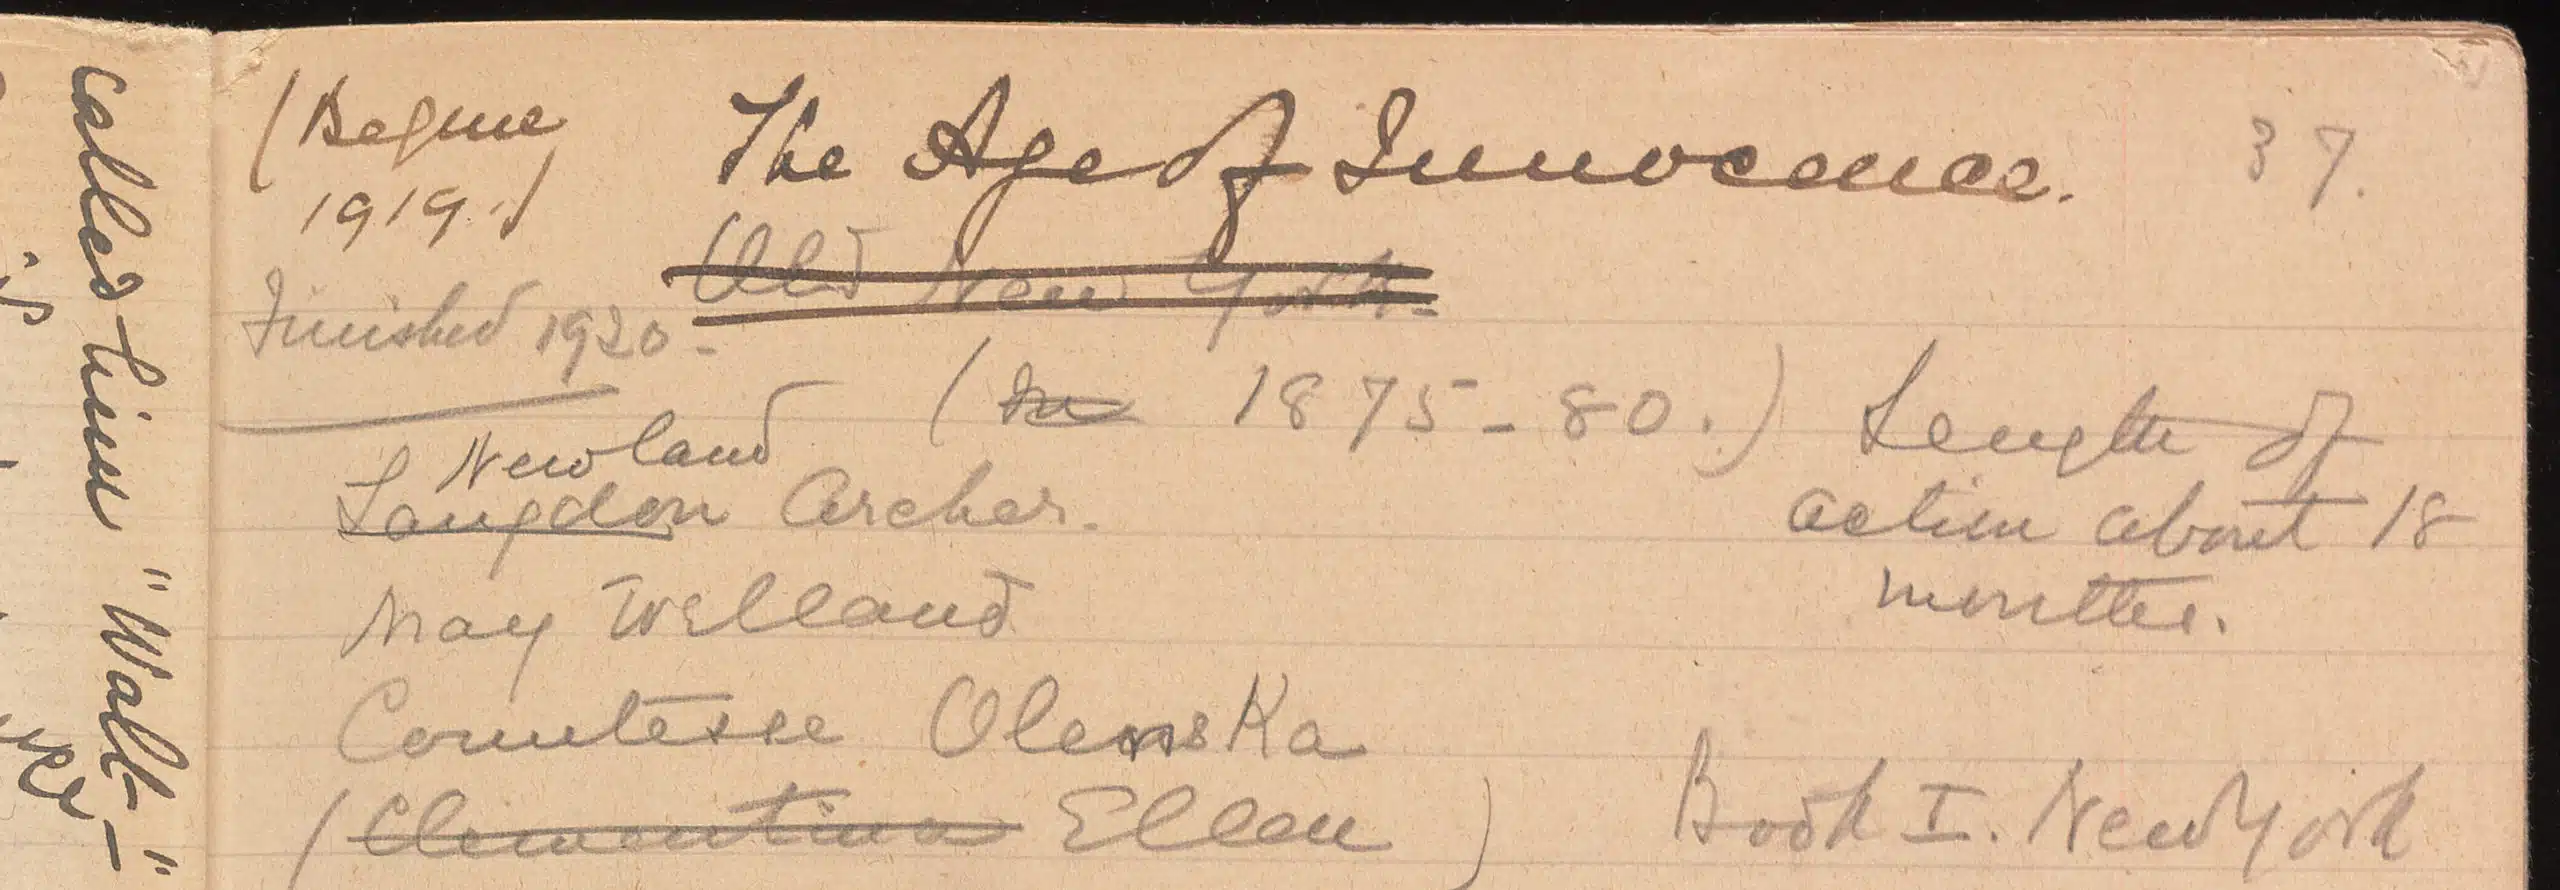 called him "Walt—"
(Begun
1919.)
The Age of Innocence.
37.
Old New York.
Finished 1920.
(In 1875-80.)
Length of
action about 18
months.
Newland
Langdon Archer.
May Welland
Comtesse Olenska
(Clementina Ellen)
Book I. New York